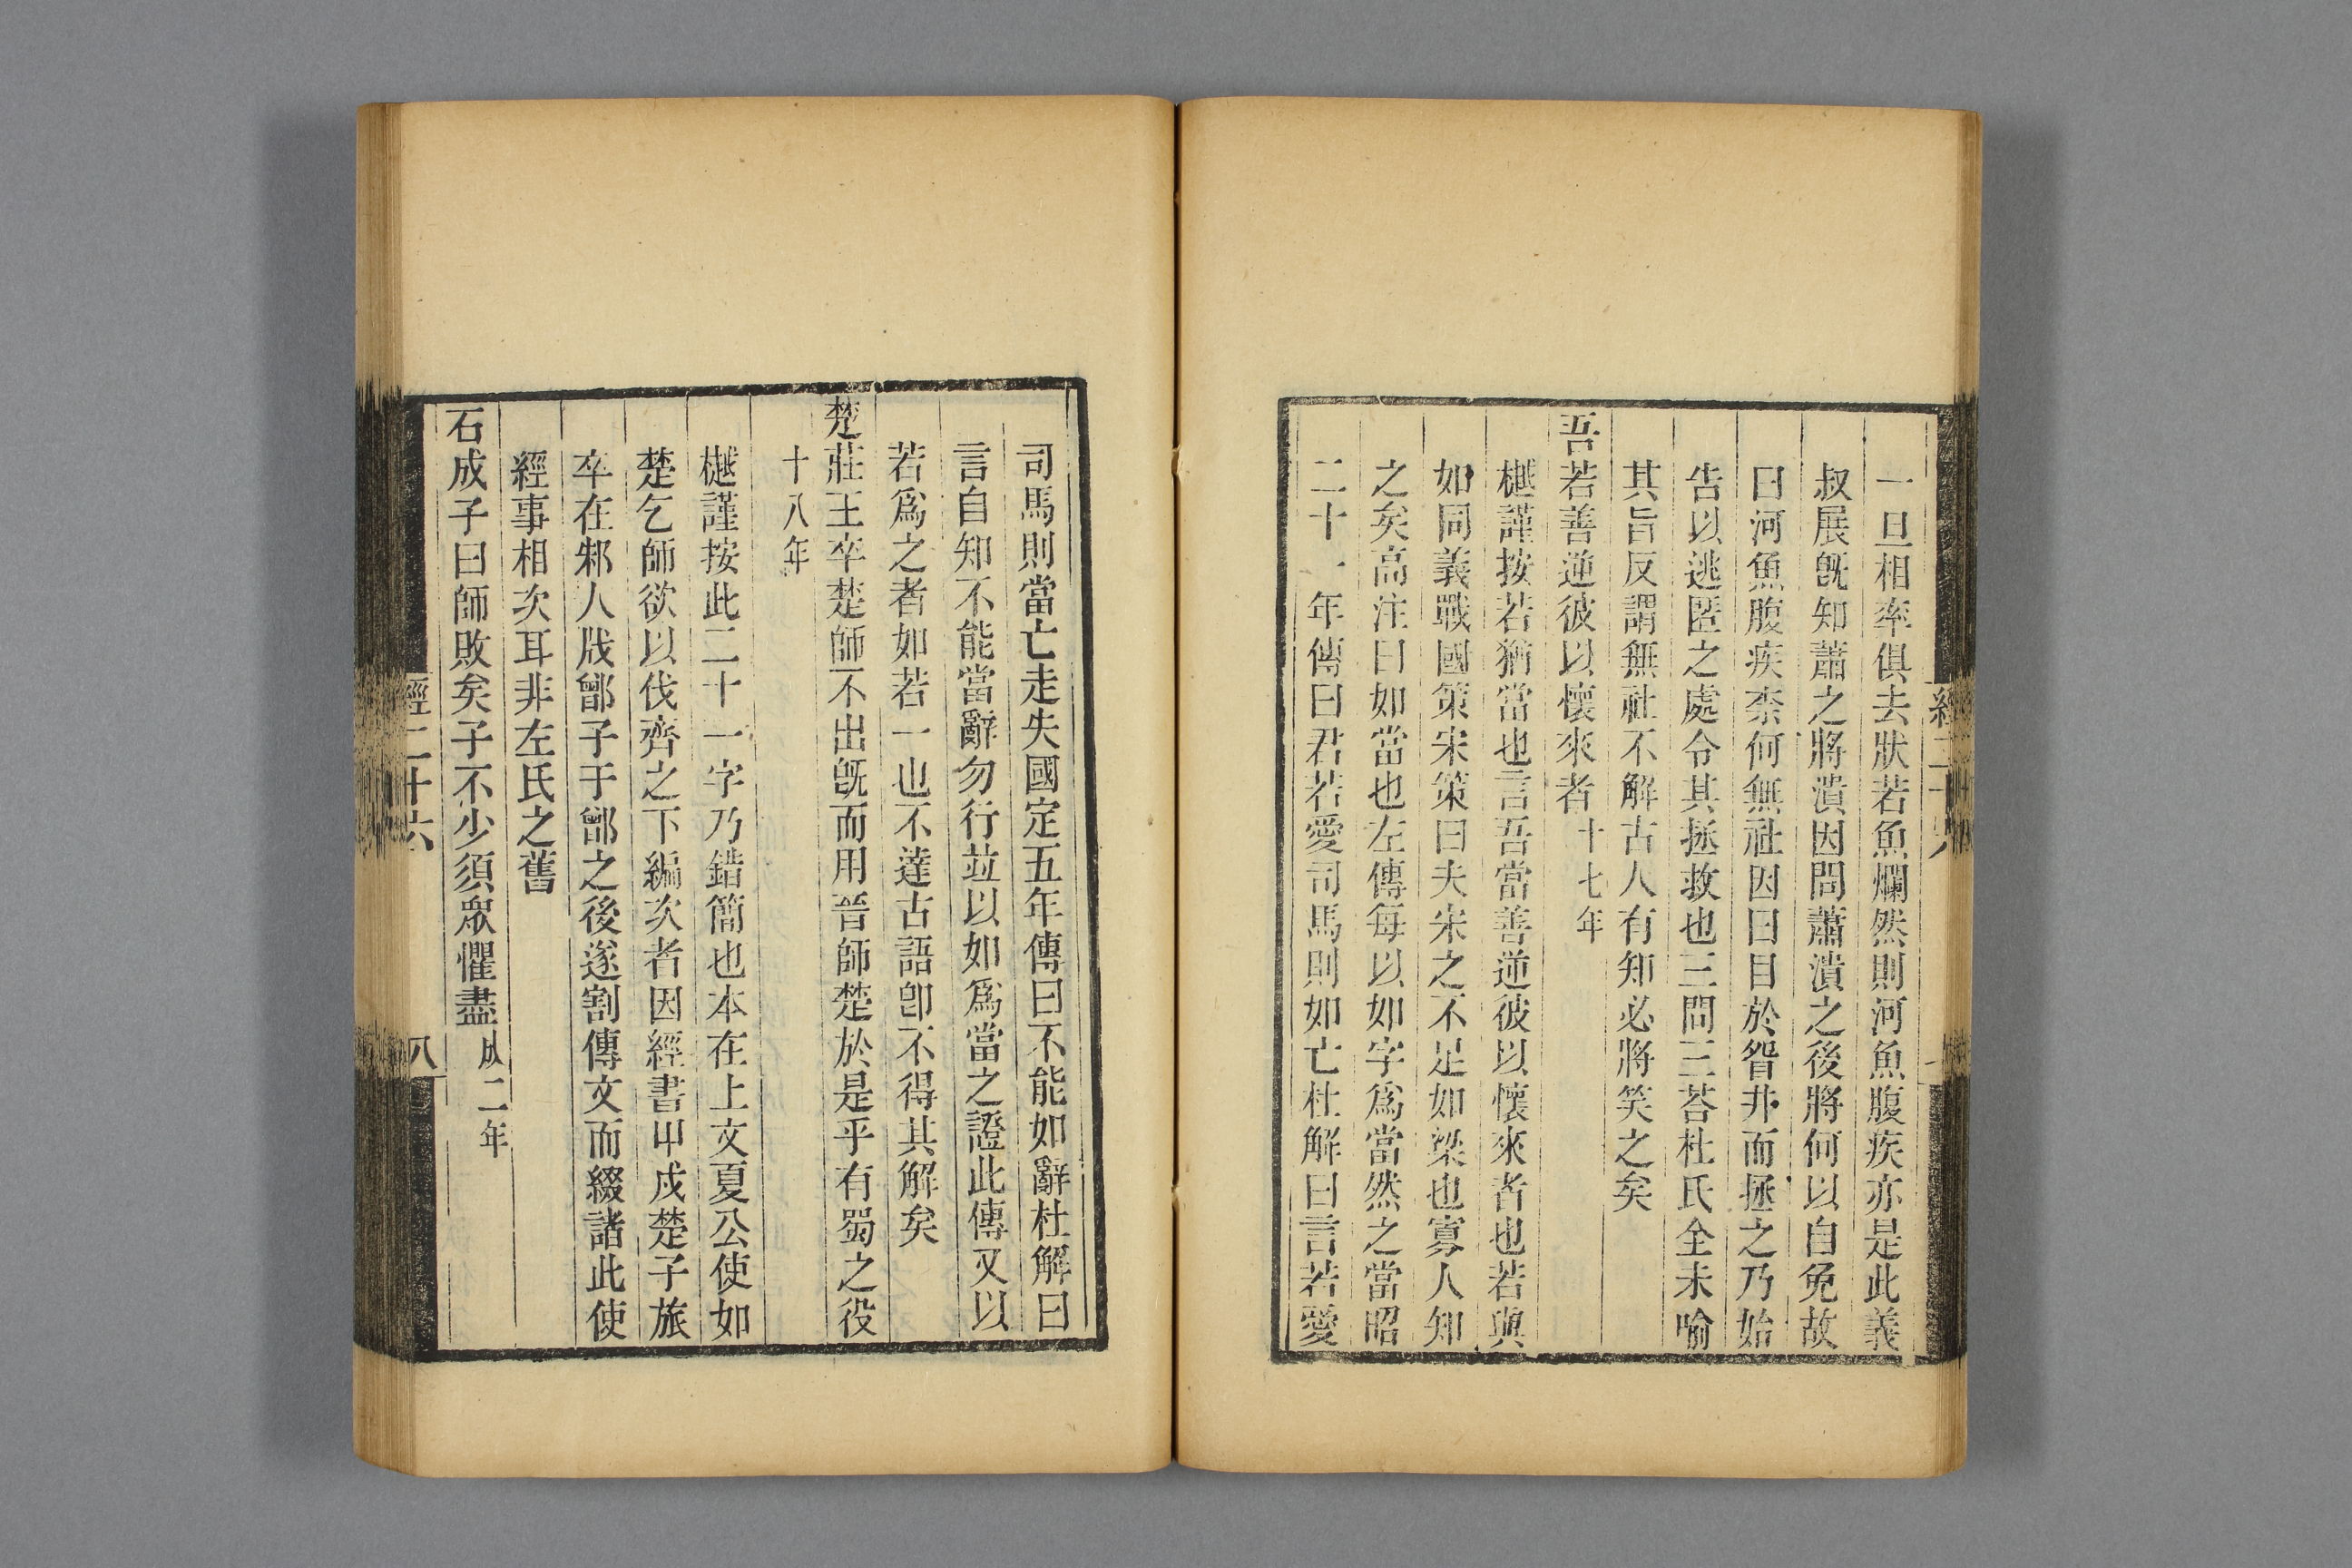 一旦相率俱去狀若魚爛然則河魚腹疾亦是此義
叔展旣知蕭之將潰因問蕭潰之後將何以自免故
曰河魚腹疾柰何無社因曰目於眢井而拯之乃始
告以逃匿之處令其拯救也三問三荅杜氏全未喻
其旨反謂無社不解古人有知必將笑之矣
吾若善逆彼以懷來者十七年
樾謹按若猶當也言吾當善逆彼以懷來者也若與
如同義戰國策宋策曰夫宋之不足如梁也寡人知
之矣高注曰如當也左傳每以如字爲當然之當昭
二十一年傳曰君若愛司馬則如亡杜解曰言若愛
司馬則當亡走失國定五年傳曰不能如辭杜解曰
言自知不能當辭勿行竝以如爲當之證此傳又以
若爲之者如若一也不達古語卽不得其解矣
楚莊王卒楚師不出旣而用晉師楚於是乎有蜀之役
十八年
樾謹按此二十一字乃錯簡也本在上文夏公使如
楚乞師欲以伐齊之下編次者因經書甲戌楚子旅
卒在邾人戕鄫子于鄫之後遂割傳文而綴諸此使
經事相次耳非左氏之舊
石成子曰師敗矣子不少須眾懼盡成二年
經二十六
八